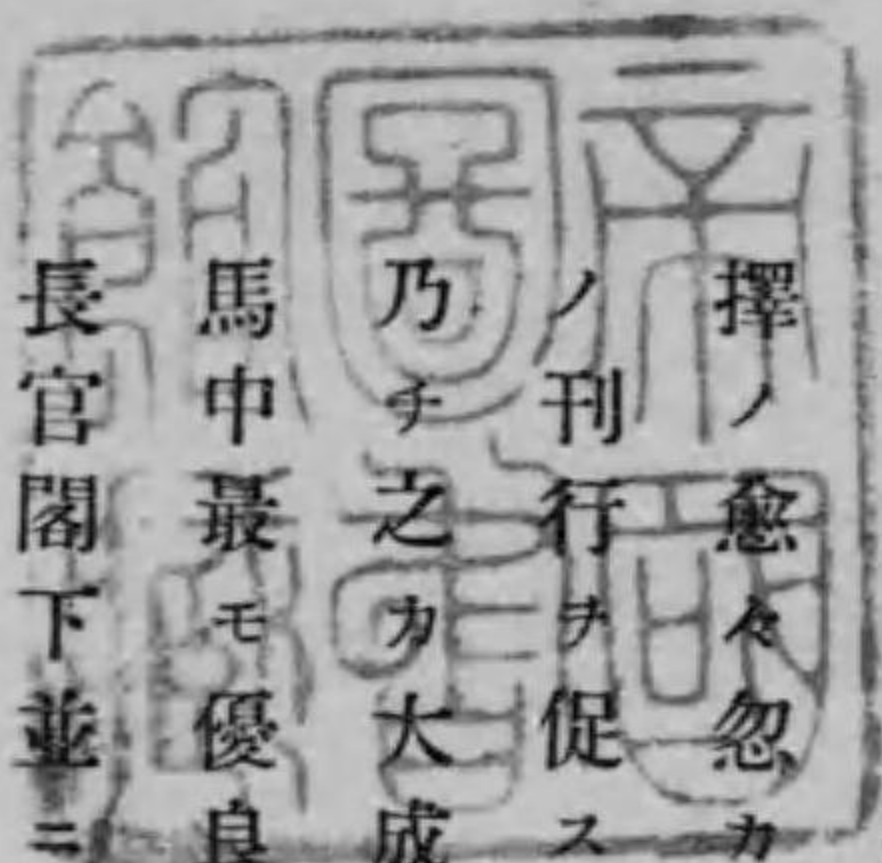 擇ノ愈々忽カ
ノ刊行ヲ促ス
乃チ之カ大成
馬中最モ優良
長官閣下並ニ